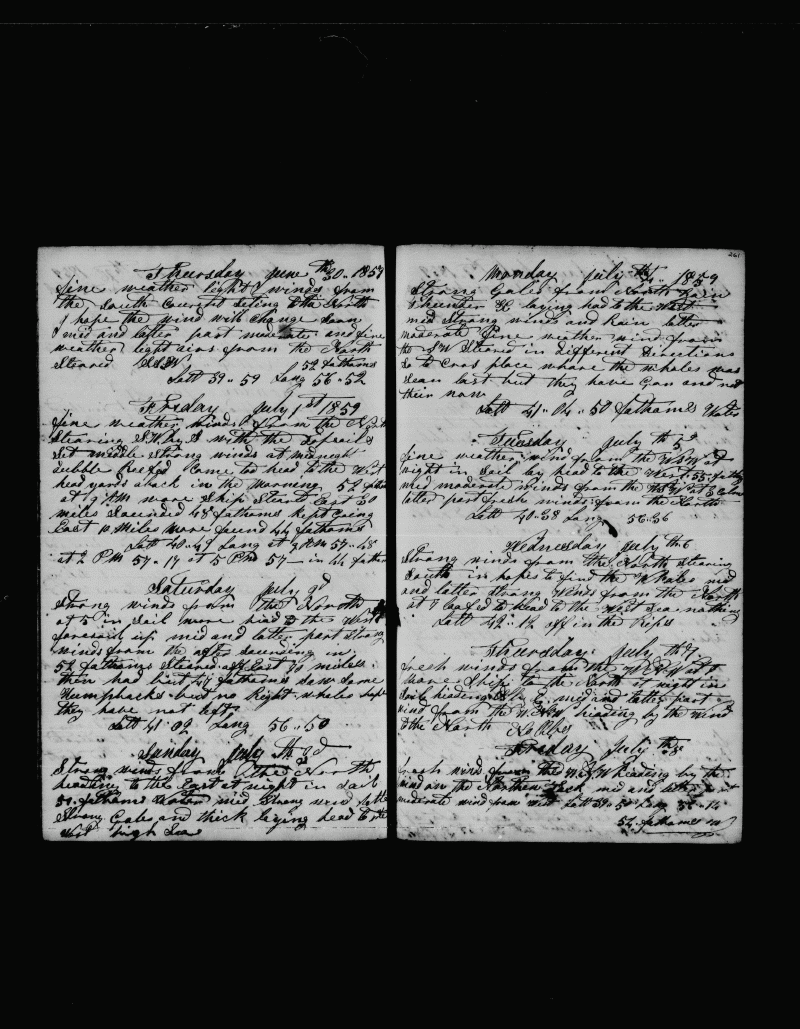 Thursday June th 30.. 1859
fine weather light winds from
the South Current Seting to the North
I hope the wind will change soon
mid and later part moderate and fine
weather light airs from the North
Steared 52 fathoms
Latt 39.. 59 Long 56.. 52
Friday July 1st 1859
fine weather winds from the
Stearing S.W. by S with the topsails
Set middle Strong winds at midneght
dubble Reefed Came to head to the West
head yards aback in the morning 52
at 9 AM wore Ship Steard East 30
miles Sounded 48 fathoms kept going
East 10 Miles more found 44 fathoms
Latt 40-47 Long at 9 AM 57-48
at 2 PM 57-17 at 5 PM 57 — in 44 fathom
Saturday July 2d
Strong winds from the North
at 5 in Sail wore head to the West
foresail up mid and latter part Strong
winds from the after sounding in
52 fathoms Steared off East 30 miles
then had but 49 fathoms Saw Some
Humpbacks but no Right whales
they have not
Latt 41.. 02 Long 56.. 50
Sunday July th 3d
Strong winds from the North
heading to the East at night in Sail
fathoms Water mid Strong wind
Strong Gales and thick laying head to the
West high Sea
261
Monday July th 4.. 1859
Strong Gales from North Rain
thunder &c laying head to the West
mid Strong winds and Rain latter
moderate fine weather wind from
the S W Steared in Different Directions
So to Cros place where the whales was
Sean last but they have Gon and not
their now
Latt 41.. 04.. 50 fathoms Water
Tuesday July th 5d
fine weather wind from the at
night in Sail by head to the West.. 55..
mid moderate winds from the at
latter part fresh winds from the North
Latt 40-38 Long 56-36
Wednesday July th 6
Strong winds from the North Stearing
South in hopes to find the Whales mid
and latter Strong winds from the North
at 7 to head to the West Sea nothing
Latt 42.. off in the Rips
Thursday July th 7
fresh winds from the
wore Ship to the North at night in
Sail heading mid and latter part
wind from the heading by the wind
to the North No Obs
Friday July th 8
fresh wind from the heading by the
wind on the Northen tack mid and latter part
moderate wind from West Latt 39.. Long
52 fathoms